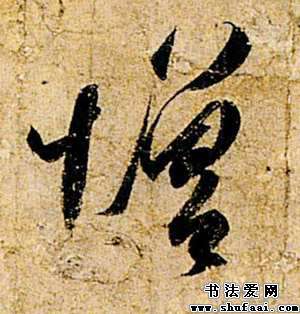 憎
书法爱网
www.shufaai.com